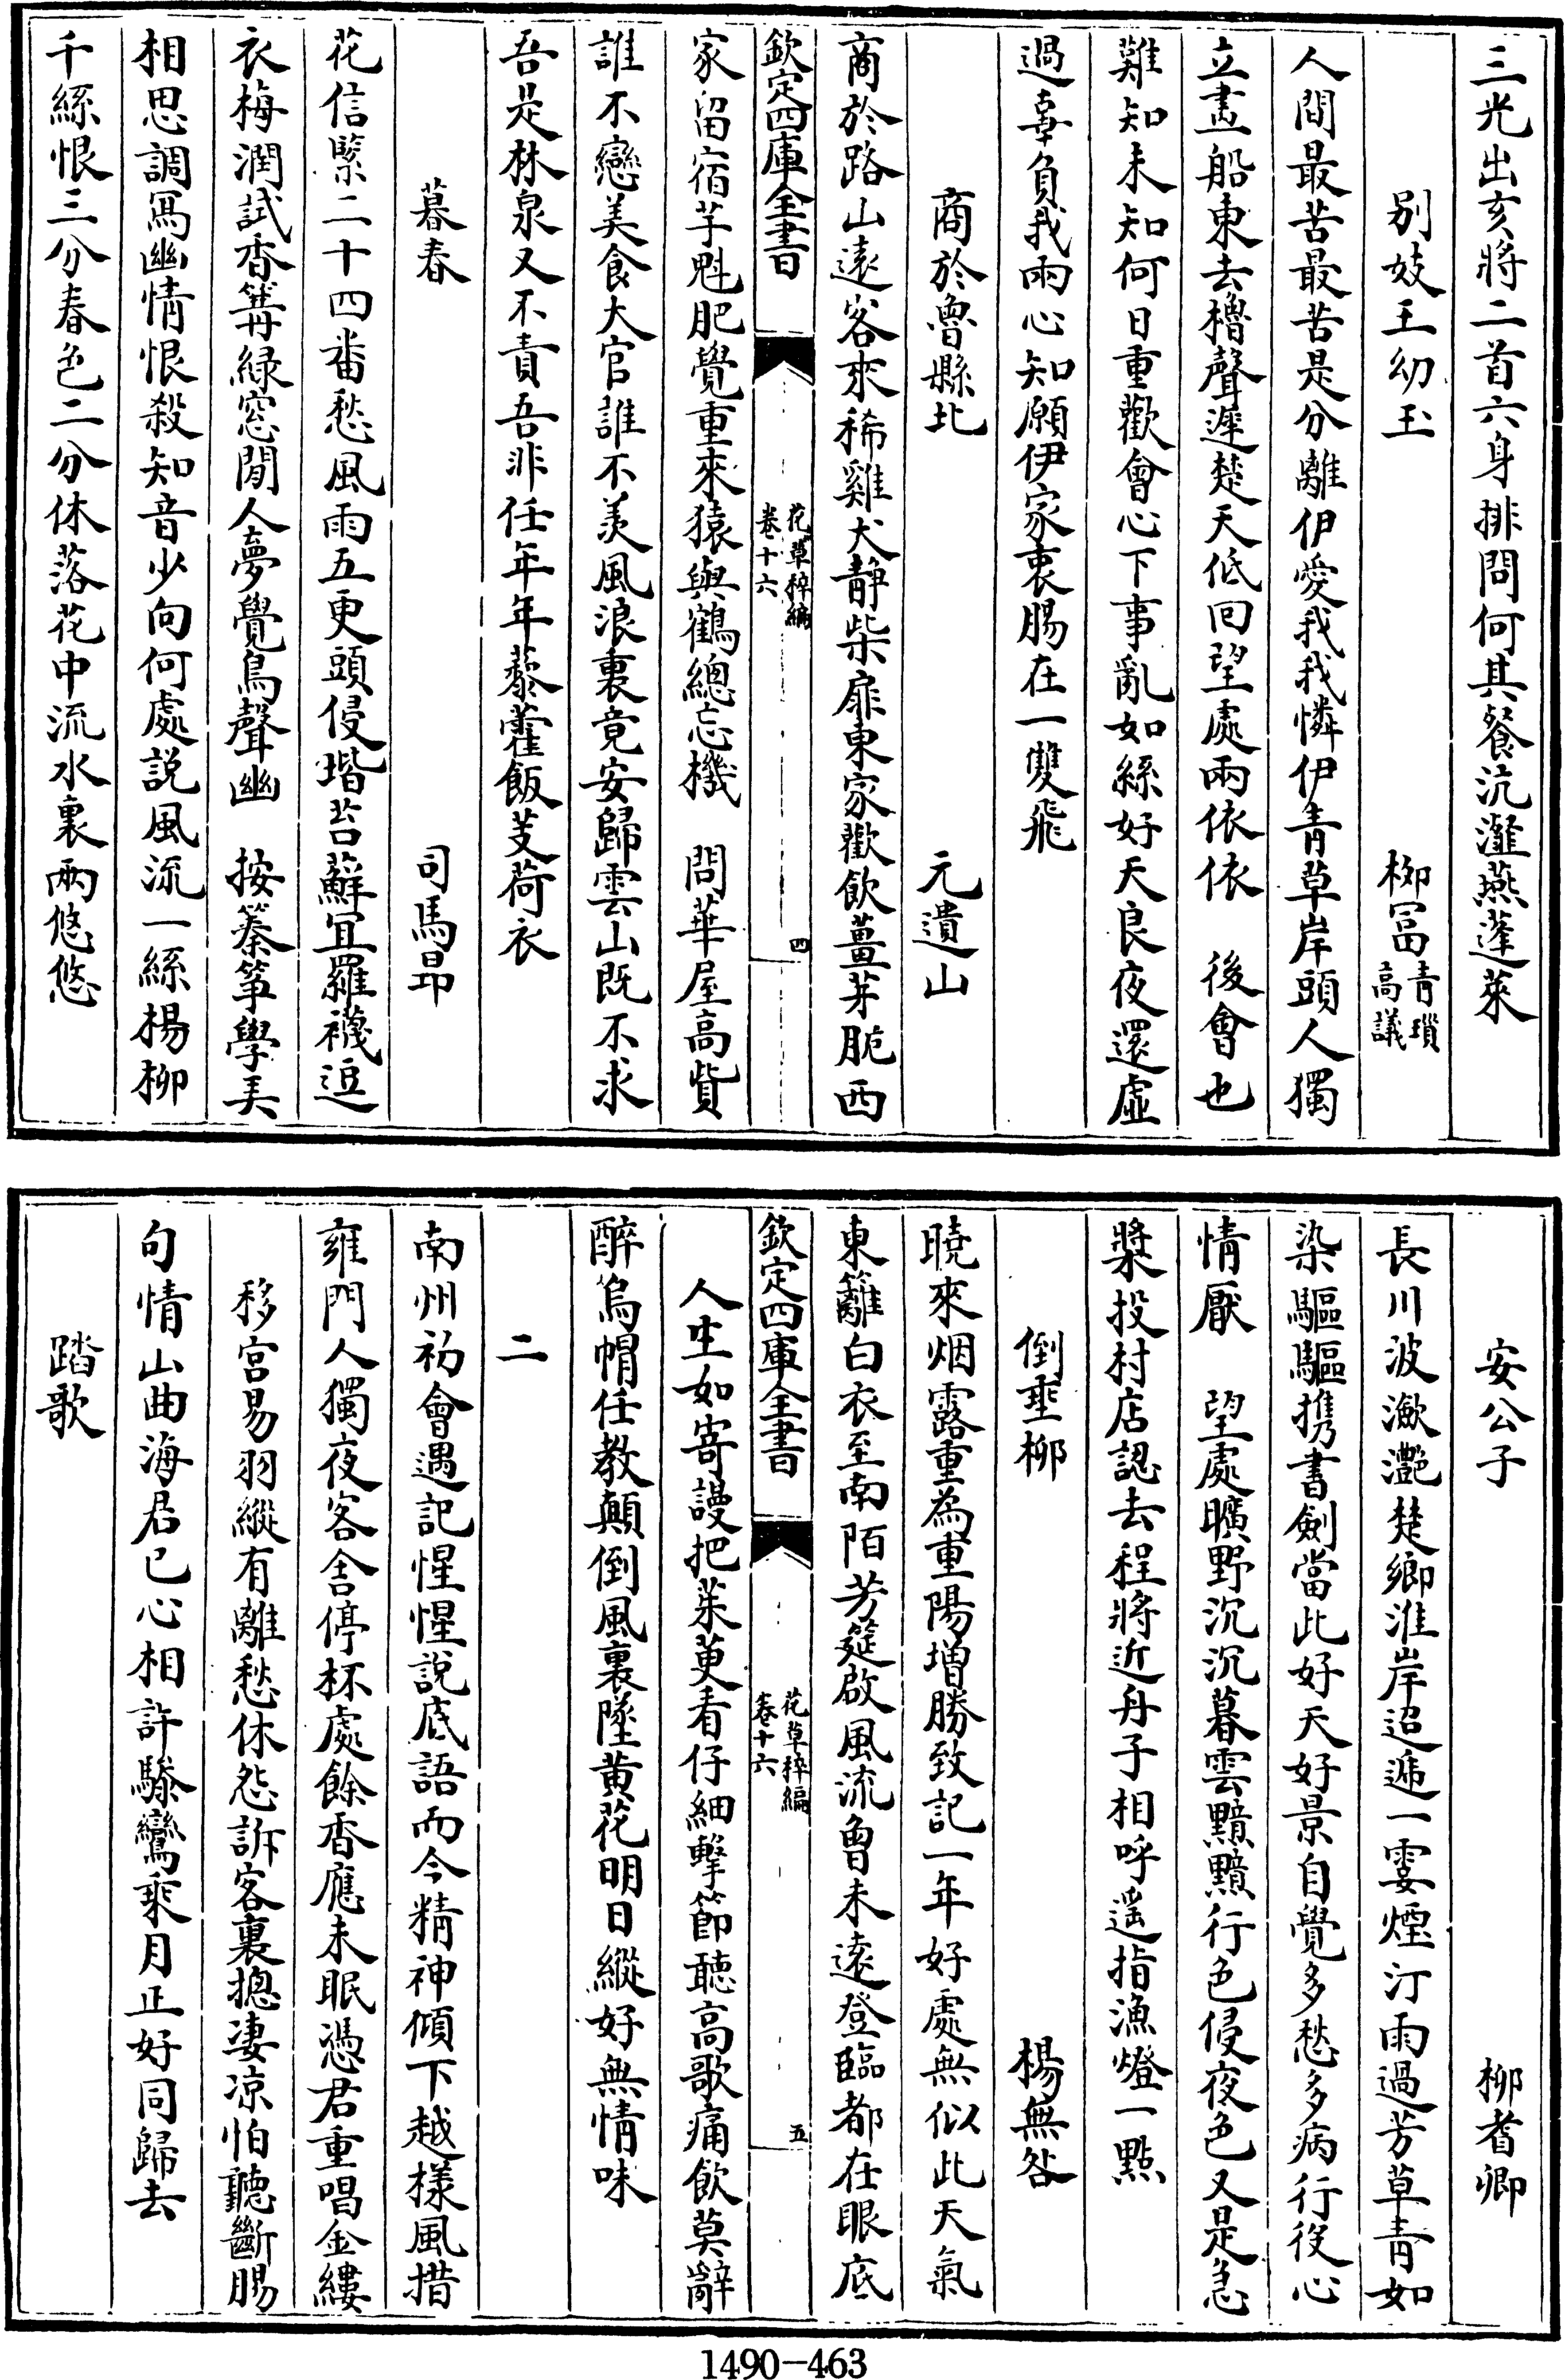 三光出亥將二首六身排問何其餐沆瀣燕蓬萊
别妓王幼玉　柳冨青瑣高議
人間最苦最苦是分離伊愛我我憐伊青草岸頭人獨
立畫船東去櫓聲遲楚天低回望處兩依依　後會也
難知未知何日重歡會心下事亂如絲好天良夜還虚
過辜負我兩心知願伊家衷腸在一雙飛
商於魯縣北　元遺山
商於路山遠客來稀雞犬静柴扉東家歡飲薑芽脆西
欽定四庫全書　花草稡編卷十六　四
家留宿芋魁肥覺重來猿與鶴總忘機　問華屋高貲
誰不戀美食大官誰不羡風浪裏竟安歸雲山既不求
吾是林泉又不責吾非任年年藜藿飯芰荷衣
暮春　司馬昂
花信緊二十四番愁風雨五更頭侵堦苔蘚宜羅襪逗
衣梅潤試香篝緑窓閒人夢覺鳥聲幽　按蓁筝學美
相思調寫幽情恨殺知音少向何處説風流一絲楊柳
千絲恨三分春色二分休落花中流水裏兩悠悠
安公子　柳耆卿
長川波瀲灧楚鄉淮岸迢遞一霎煙汀雨過芳草青如
染驅驅携書劍當此好天好景自覺多愁多病行役心
情厭　望處曠野沉沉暮雲黯黯行色侵夜色又是急
槳投村店認去程將近舟子相呼遥指漁燈一點
倒垂柳　楊無咎
曉來烟露重為重陽增勝致記一年好處無似此天氣
東籬白衣至南陌芳筵啟風流曾未遠登臨都在眼底
欽定四庫全書　花草稡編卷十六　五
人生如寄謾把茱萸看仔細擊節聽高歌痛飲莫辭
醉烏帽任教顛倒風裏墜黄花明日縱好無情味
二
南州初會遇記惺惺說底語而今精神傾下越樣風措
雍門人獨夜客舍停杯處餘香應未眠憑君重唱金縷
移宫易羽縱有離愁休怨訴客裏摠凄凉怕聽斷腸
句情山曲海君已心相許驂鸞乘月正好同歸去
踏歌
1490-463